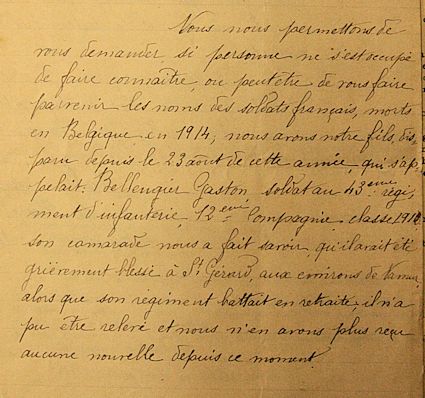 Nous nous permettons de
vous demander, si personne ne s'est occupé
de faire connaître, ou peut être de vous faire
parvenir les noms des soldats français, morts
en Belgique en 1914; nous avons notre fils, dis
paru depuis le 23 aout de cette année, qui s'ap
pelait; Bellenguer Gaston soldat au 43ème régi,
ment d'infanterie 12ème Compagnie classe
son camarade nous a fait savoir qu'il avait été
grièrement blessé à St Gérard, aux environs de Namur,
alors que son régiment battait en retraite; il n'a
pu être relevé et nous n'en avons plus reçu
aucune nouvelle depuis ce moment.